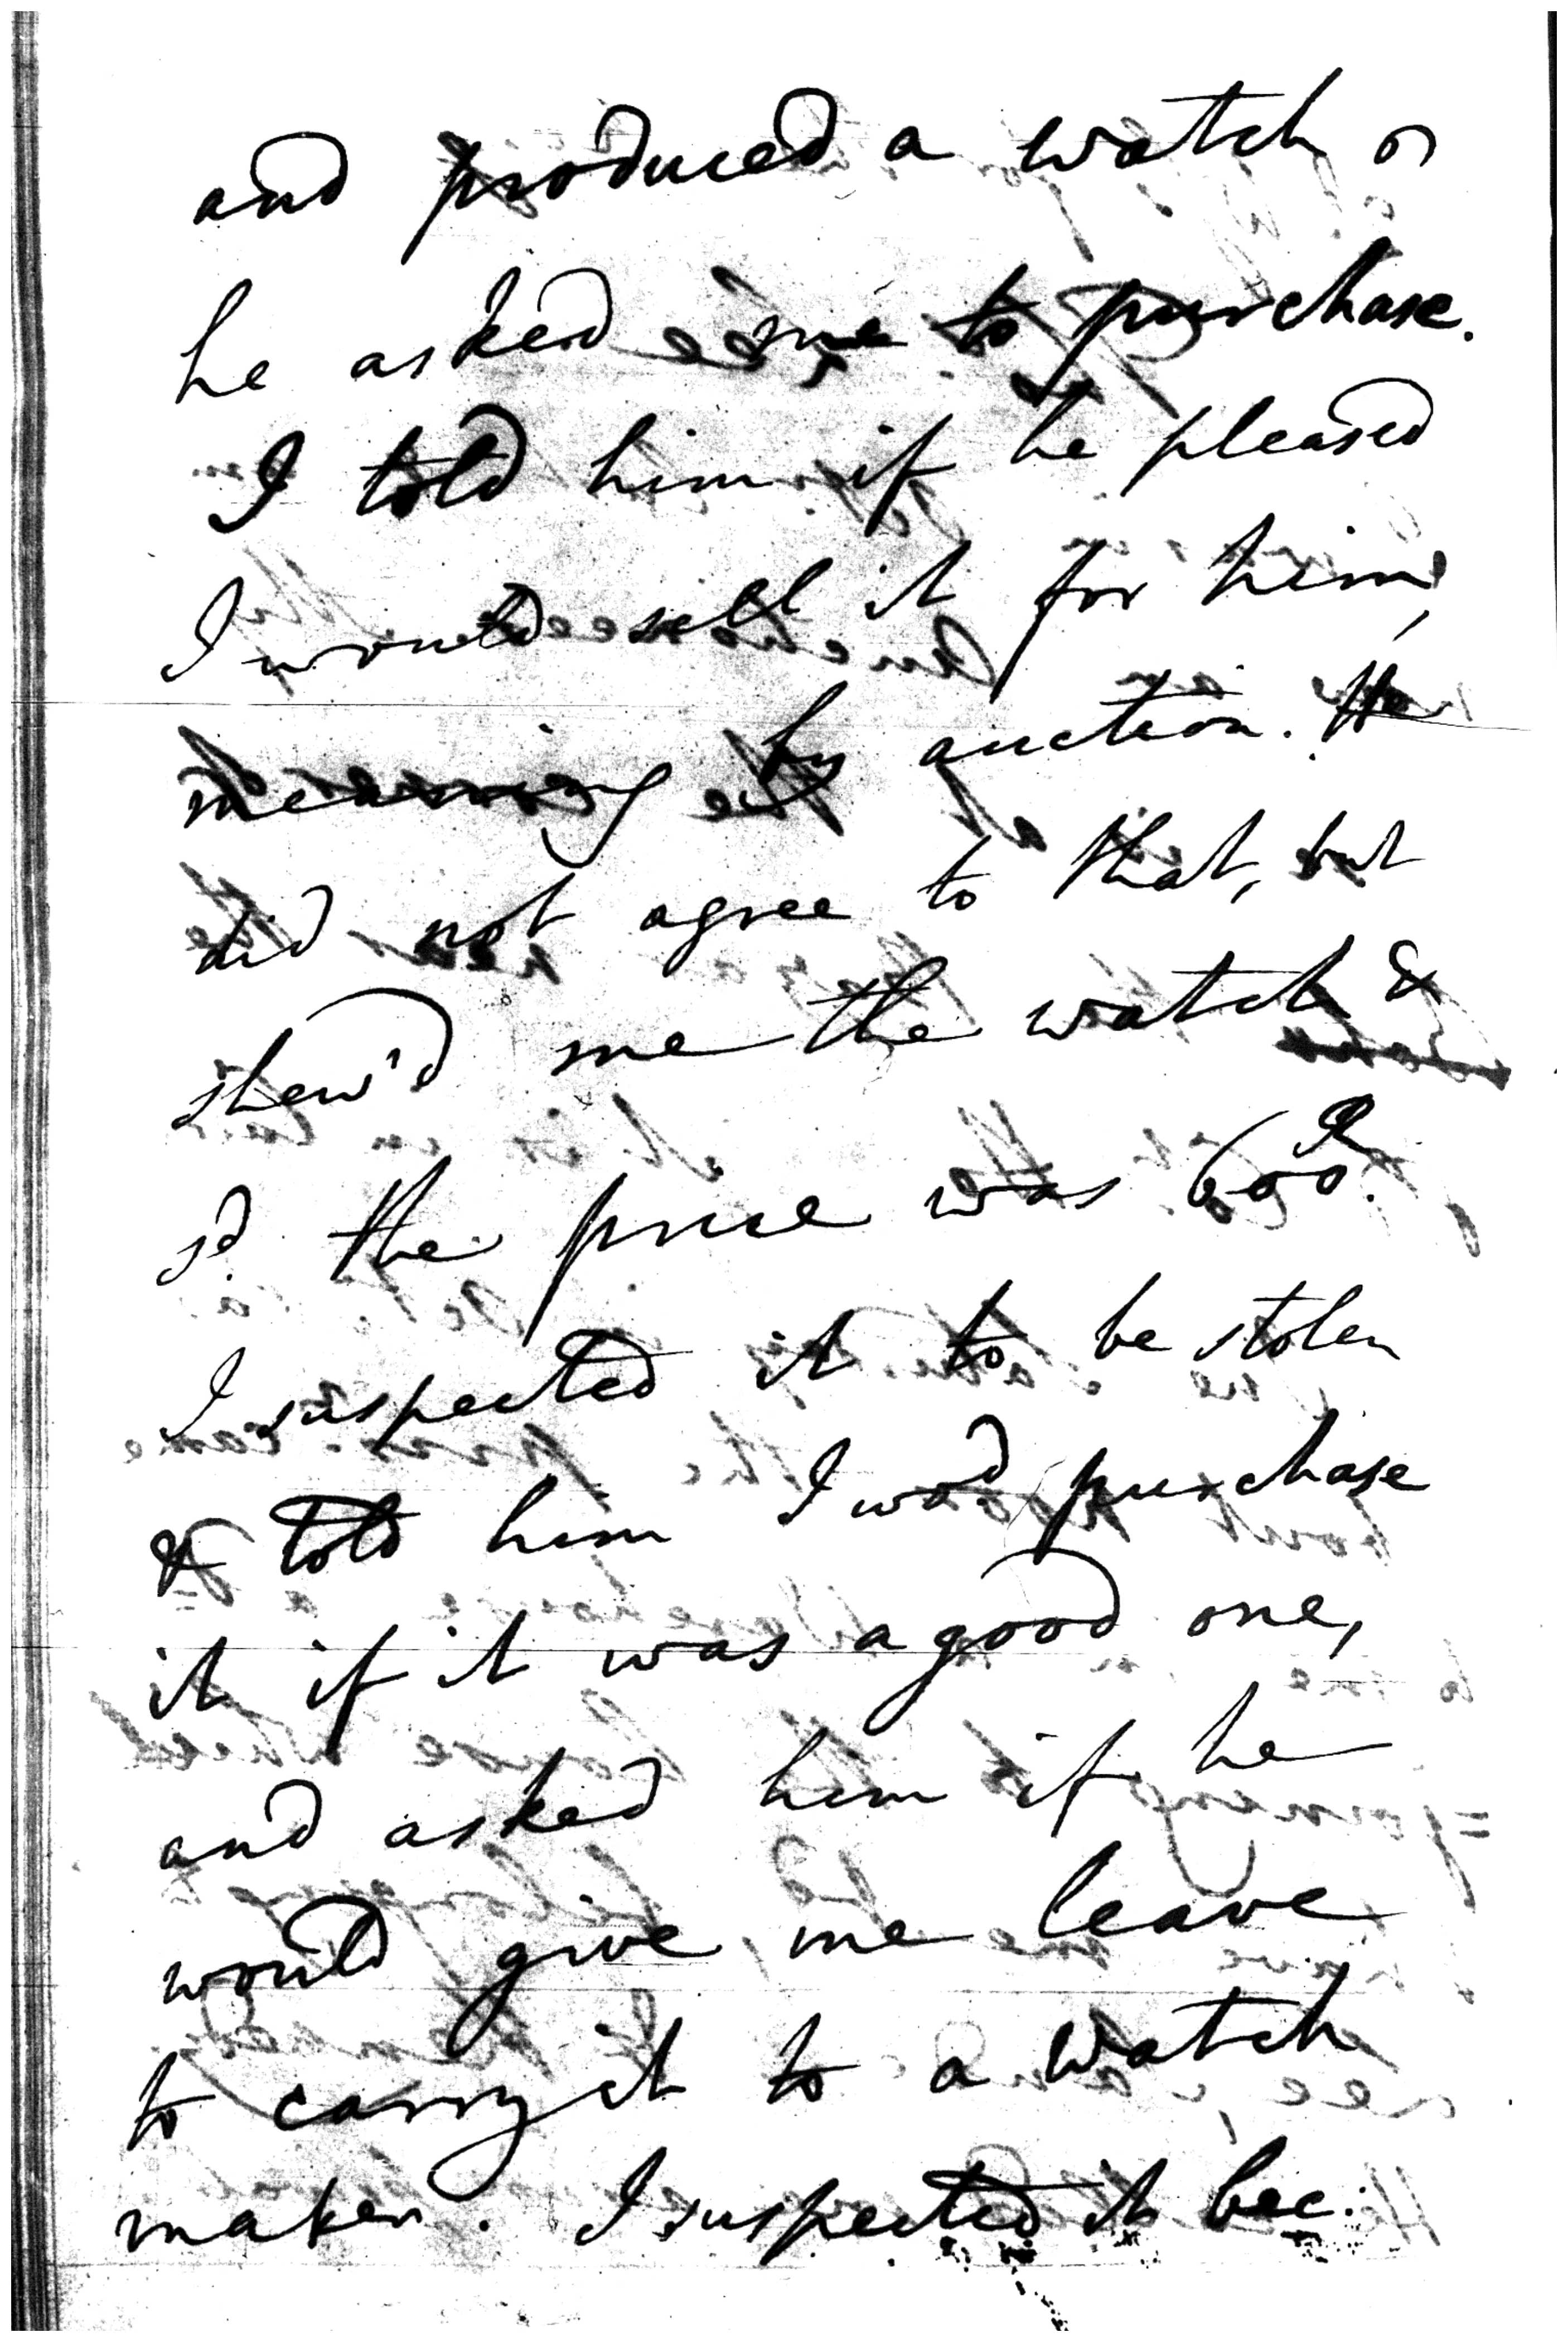 and produced a watch &
he asked me to purchase.
I told him if he pleased
I would sell it for him,
meaning by auction. He
did not agree to that, but
shew'd me the watch &
sd. the price was 600R.
I suspected it to be stolen
& told him I wod purchase
it if it was a good one,
and asked him if he
would give me leave
to carry it to a watch
maker. I suspected it bec: